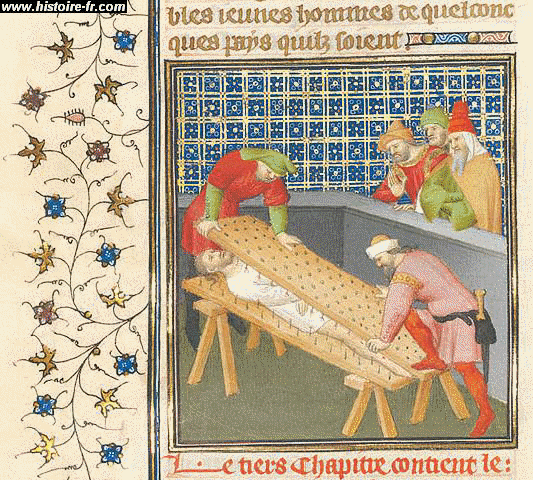 www.histoire-fr.com
bles ieunes hommes de quelconc
ques pays quilz soient
Le tiers Chapitre contient le: